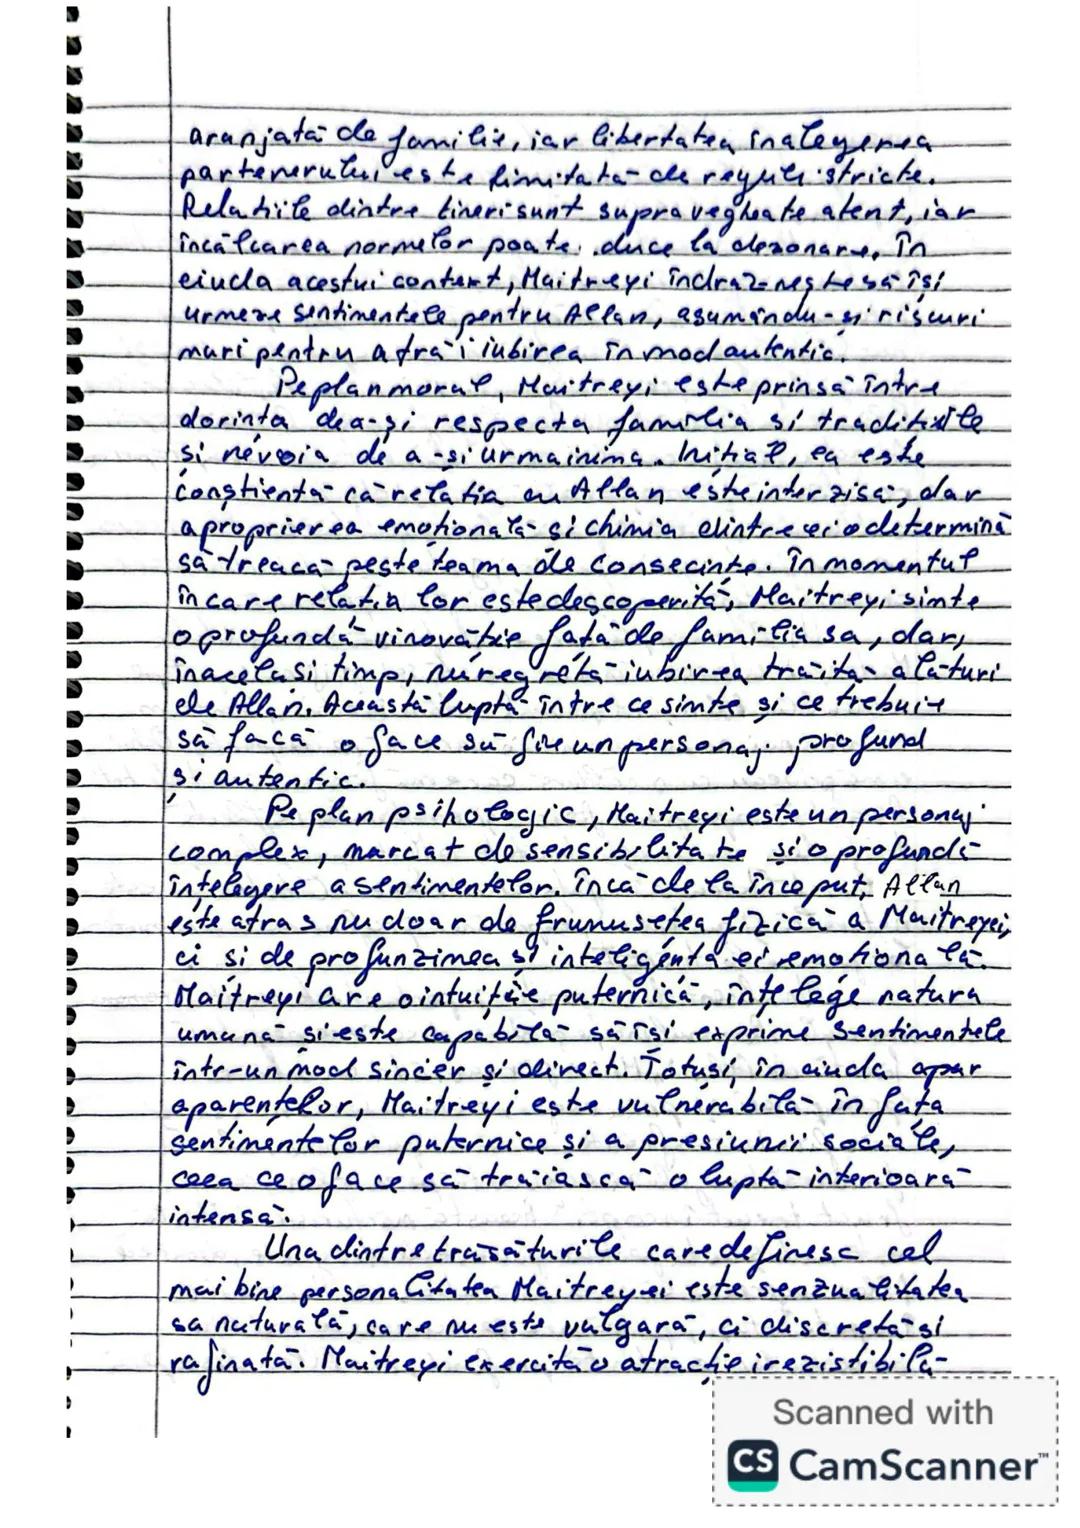 aranjată de familie, iar libertatea în alegerea
partenerului este limitată de reguli stricte.
Relațiile dintre tineri sunt supravegheate atent, iar
încălcarea normelor poate duce la dezonoare. În
ciuda acestui context, Maitreyi îndrăznește să își
urmeze sentimentele pentru Allan, asumându-și riscuri
mari pentru a trăi iubirea în mod autentic.
Pe plan moral, Maitreyi este prinsă între
dorința de a-și respecta familia și tradițiile
și nevoia de a-și urma inima. Inițial, ea este
conștientă că relația cu Allan este interzisă, dar
aproprierea emoțională și chimia dintre ei o determină
să treacă peste teama de consecințe. În momentul
în care relația lor este descoperită, Maitreyi simte
o profundă vinovăție față de familia sa, dar,
în același timp, nu regretă iubirea trăită alături
de Allan. Această luptă între ce simte și ce trebuie
să facă o face să fie un personaj profund
și autentic.
Pe plan psihologic, Maitreyi este un personaj
complex, marcat de sensibilitate și o profundă
înțelegere a sentimentelor. Încă de la început, Allan
este atras nu doar de frumusețea fizică a Maitreyei,
ci și de profunzimea și inteligența ei emoțională.
Maitreyi are o intuiție puternică, înțelege natura
umană și este capabilă să își exprime sentimentele
într-un mod sincer și direct. Totuși, în ciuda apar
aparențelor, Maitreyi este vulnerabilă în fața
sentimentelor puternice și a presiunii sociale,
ceea ce o face să trăiască o luptă interioară
intensă.
Una dintre trăsăturile care definesc cel
mai bine personalitatea Maitreyei este senzualitatea
sa naturală, care nu este vulgară, ci discretă și
rafinată. Maitreyi exercită o atracție irezistibilă
Scanned with
CS CamScanner™